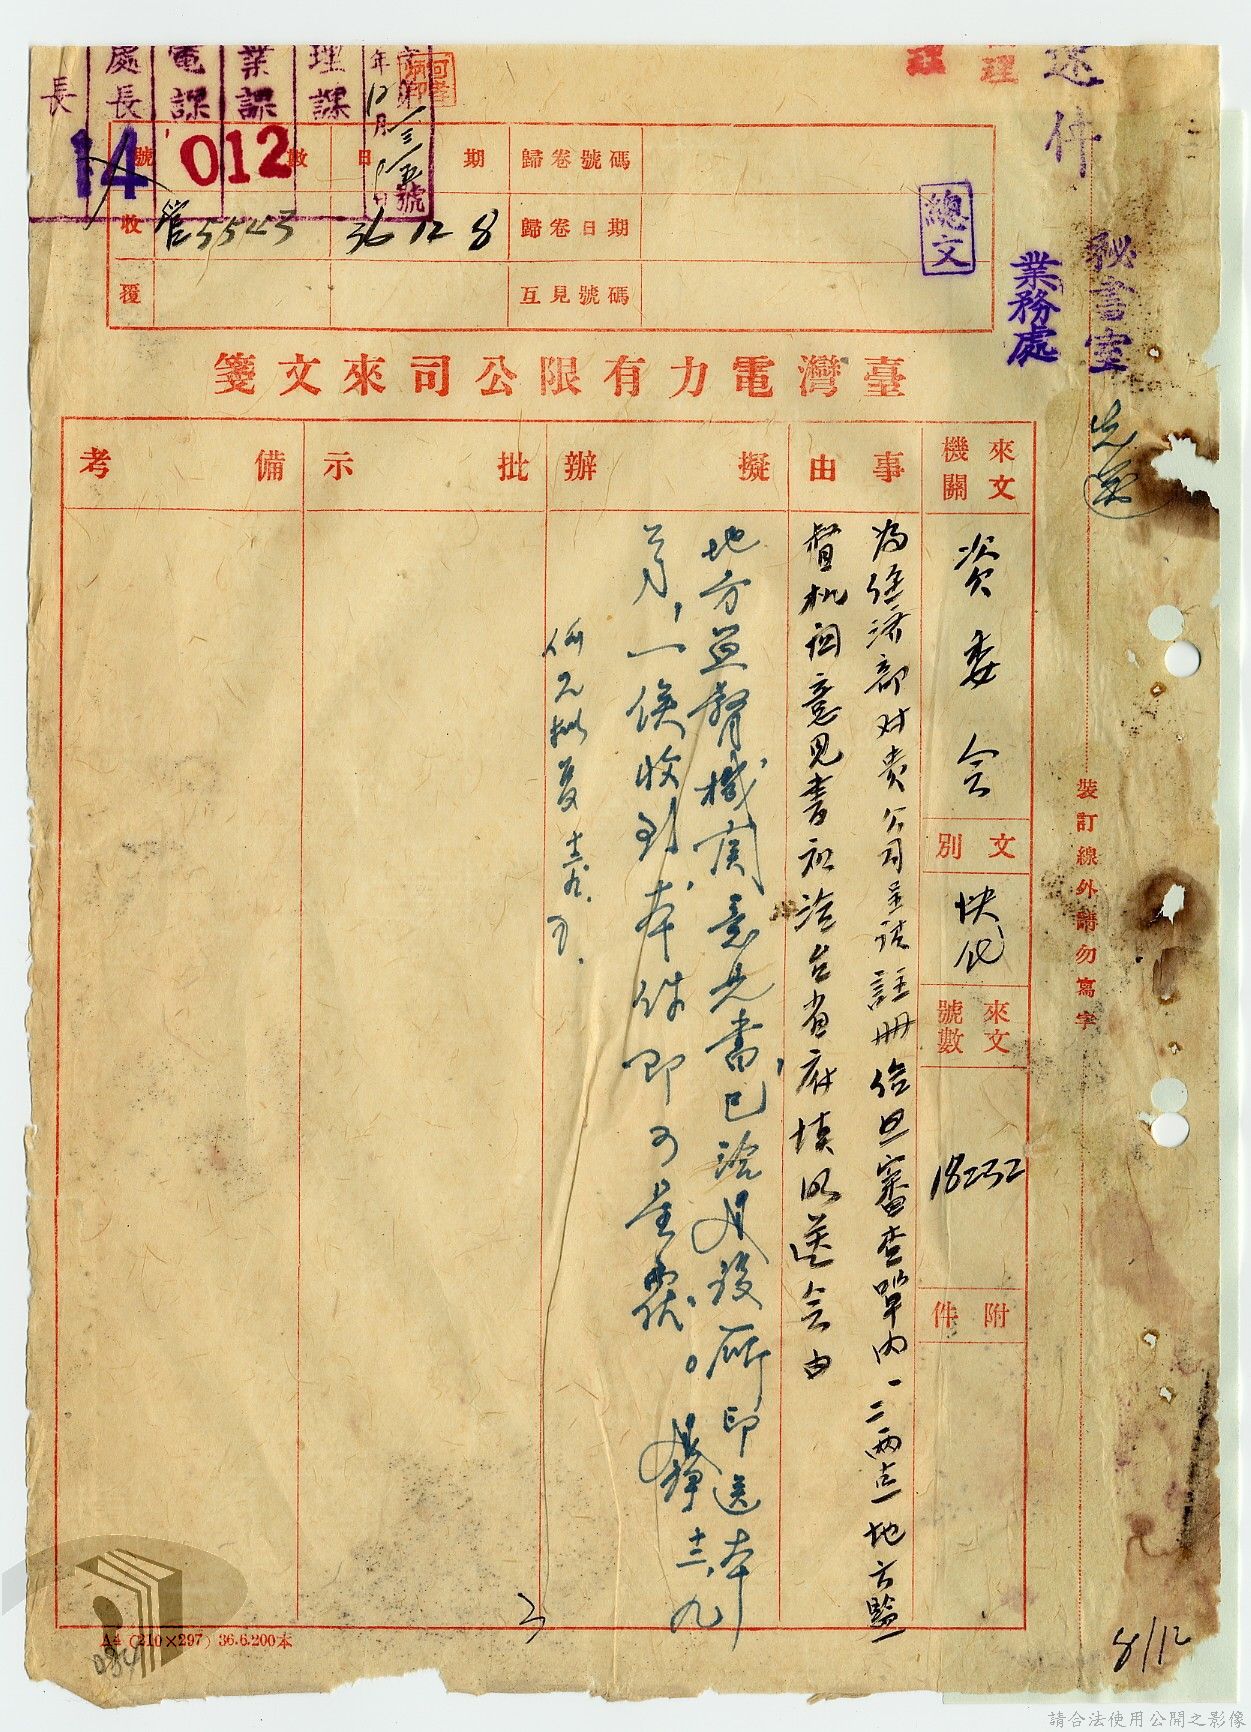 速件
秘書室
業務處
先送
總文
理課
業課
電課
處長
長
14 012
號數
日期
歸卷號碼
收
管5543
36 12 8
歸卷日期
覆
互見號碼
臺灣電力有限公司來文箋
來文機關
資委会
文別
快代
來文號數
18232
附件
事由
為經濟部对貴公司呈請註冊給照審查單內一二兩点地方監
督机関意見書祉洽台省府填以送会由
擬辦
地方並督機関意見書,已洽建設廳印送本
,一俟收到本件即可呈覆。
十二、九
批示
備考
裝訂線外請勿寫字
A4 (210×297) 36.6.200本
8/12
請合法使用公開之影像